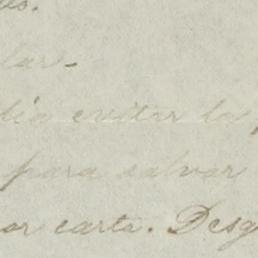 lar-
dia evitar la
para salvar
or carta. Desg